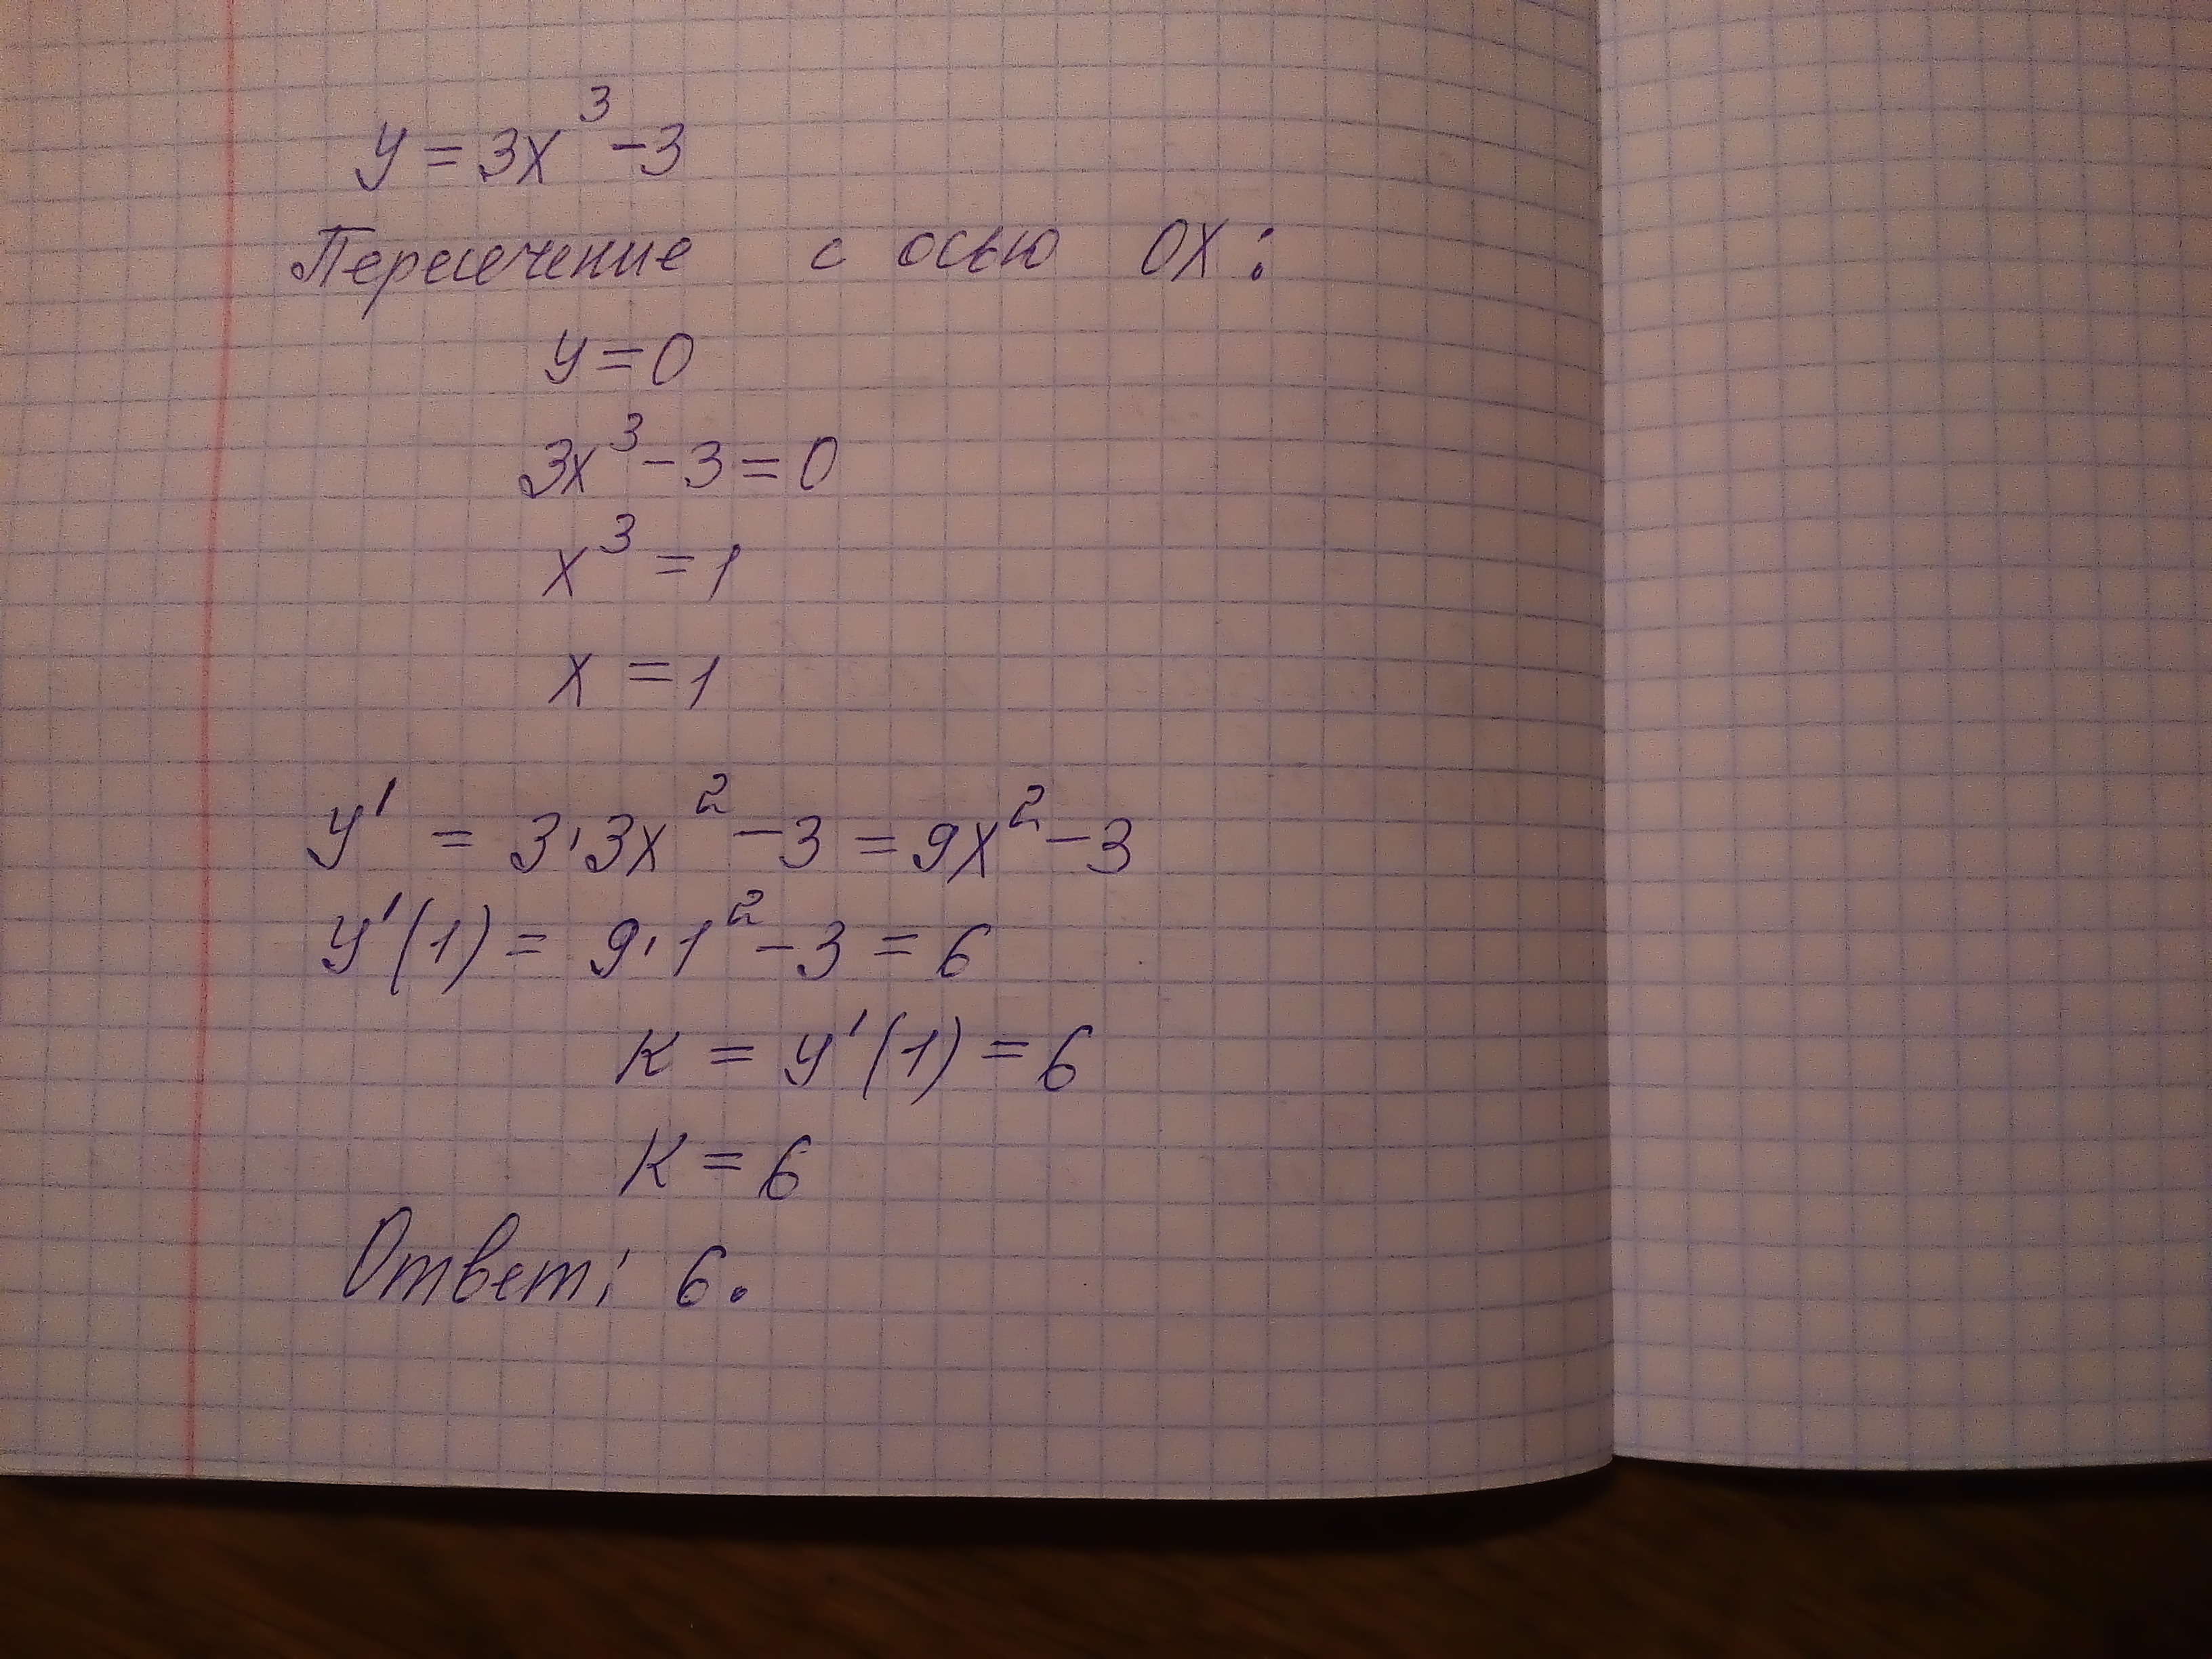 y = 3x³ - 3
Пересечение с осью OX:
y = 0
3x³ - 3 = 0
x³ = 1
x = 1
y' = 3·3x² - 3 = 9x² - 3
y'(1) = 9·1² - 3 = 6
K = y'(1) = 6
K = 6
Ответ: 6.